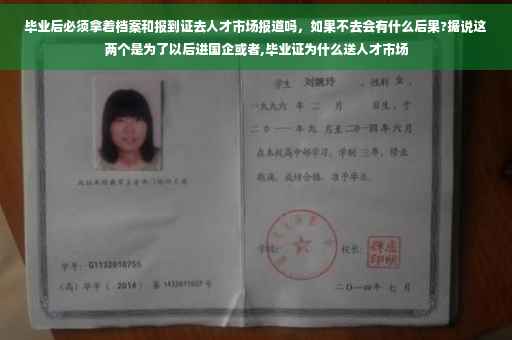 毕业后必须拿着档案和报到证去人才市场报道吗，如果不去会有什么后果?据说这
两个是为了以后进国企或者,毕业证为什么送人才市场
学生 刘婉玲 ，性别 女 ，
一九九六 年 二 月 日生，于
二〇一一年九 月至二〇一四年六月
在本校高中部学习，学制 三年，修业
期满，成绩合格，准予毕业。
学号： G1132010755
学校： 校长：
（高）毕字（ 2014 ）第 1432011027 号
二〇一四年 七 月